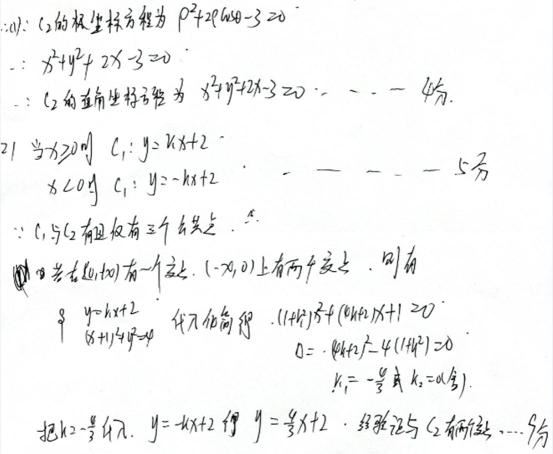 ∴(1): C₂的极坐标方程为 ρ²+2ρcosθ-3=0
∴: x²+y²+2x-3=0
∴: C₂的直角坐标方程为 x²+y²+2x-3=0 ----4分.
2) 当x≥0时 C₁: y=kx+2
x<0时 C₁: y=-kx+2 ----5分
∵ C₁与C₂有且仅有三个公共点.
① 若在[0,+∞)有一个交点, (-∞,0)上有两个交点. 则有
{ y=kx+2 代入化简得 (1+k²)x²+(4k+2)x+1=0
(x+1)²+y²=4
Δ=(4k+2)²-4(1+k²)=0
k₁=-4/3 或 k₂=0(舍).
把k=-4/3代入. y=-kx+2 得 y=4/3x+2. 经验证与C₂有两个交点 ....9分